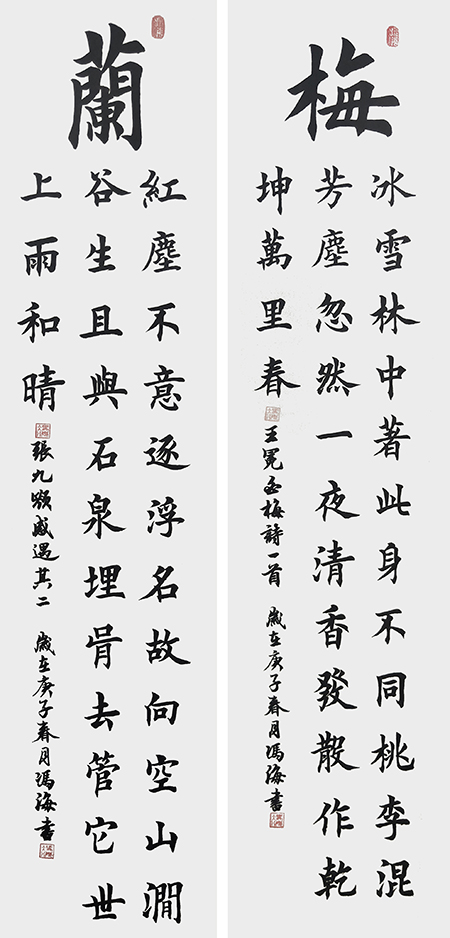 梅
冰雪林中著此身不同桃李混
芳塵忽然一夜清香發散作乾
坤萬里春
王冕白梅詩一首 歲在庚子春月馮海書
蘭
紅塵不意逐浮名故向空山澗
谷生且與石泉埋骨去管它世
上雨和晴
張九齡感遇其二 歲在庚子春月馮海書